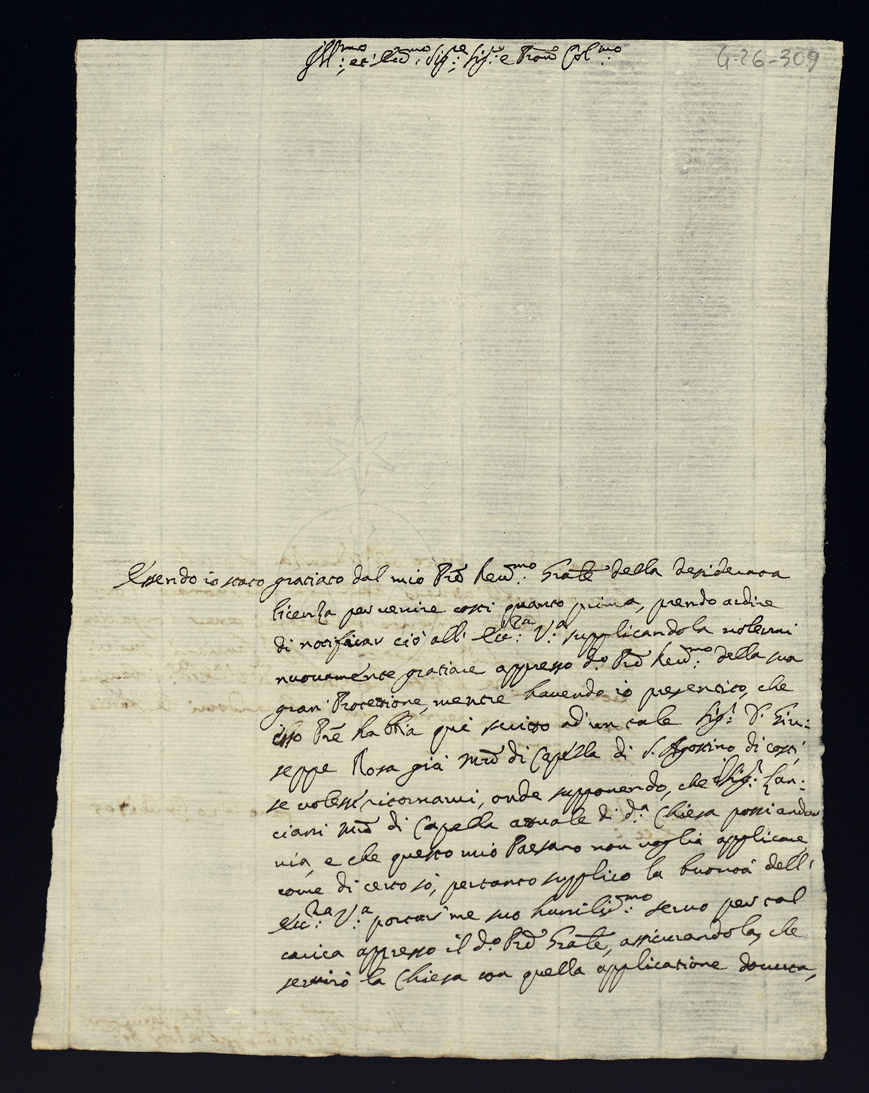 Ill:mo et Ecc:mo Sig:re Sig:r e Pron Col:mo
G-26-309
Essendo io stato gratiato dal mio Prē Rev:mo Grāte della desiderata
licenza per venire costì quanto prima, prendo ardire
di notificar ciò all' Ecc:za V:a supplicandola volermi
nuovamente gratiare appresso do Prē Rev:mo della sua
gran Protetione, mentre havendo io presentito, che
esso Prē habbia quì scritto ad'un tale Sig:r D. Giu=
seppe Rosa già Mrō di Capella di S. Agostino di costì,
se volesse ritornarvi, onde supponendo, che il Sig:r Lan=
ciani Mrō di Capella attuale di d:a Chiesa possi andar
via, e che questo mio Paesano non voglia applicare,
come di certo sò, pertanto supplico la buontà dell'
Ecc:za V:a portar me suo humilis:mo servo per tal
carica appresso il do Prē Grāte, assicurandola, che
servirò la Chiesa con quella applicatione dovuta,